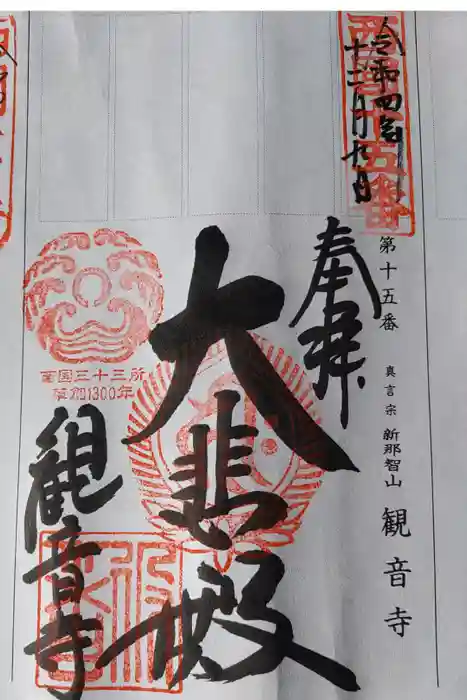 令和四年
十二月九日
西国十五番
奉拝
第十五番 真言宗 新那智山 観音寺
大悲殿
西国三十三所
草創1300年
観音寺